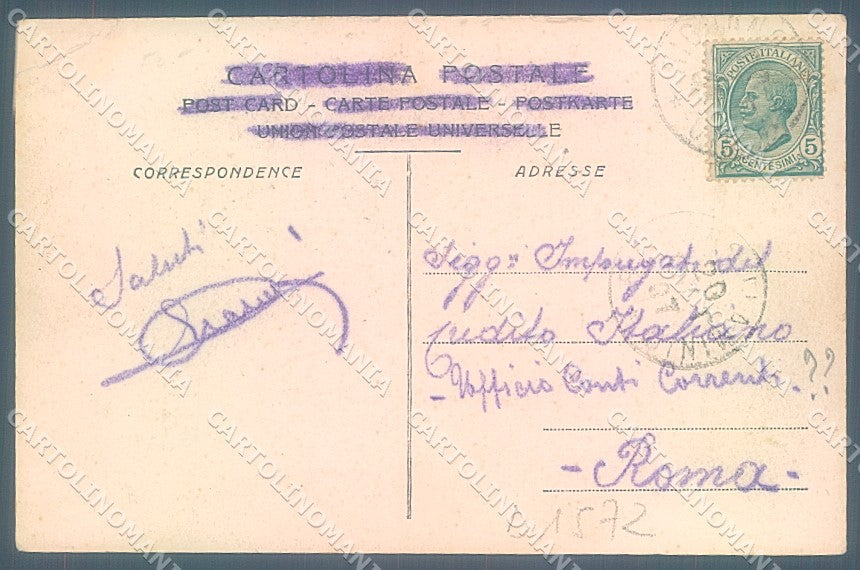 CARTOLINA POSTALE
POST CARD - CARTE POSTALE - POSTKARTE
UNION POSTALE UNIVERSELLE
CORRESPONDENCE
ADRESSE
POSTE ITALIANE
5 5
CENTESIMI
Saluti
Sigg:i Impiegati del
Credito Italiano
- Ufficio Conti Correnti - ??
- Roma -
1572
CARTOLINOMANIA